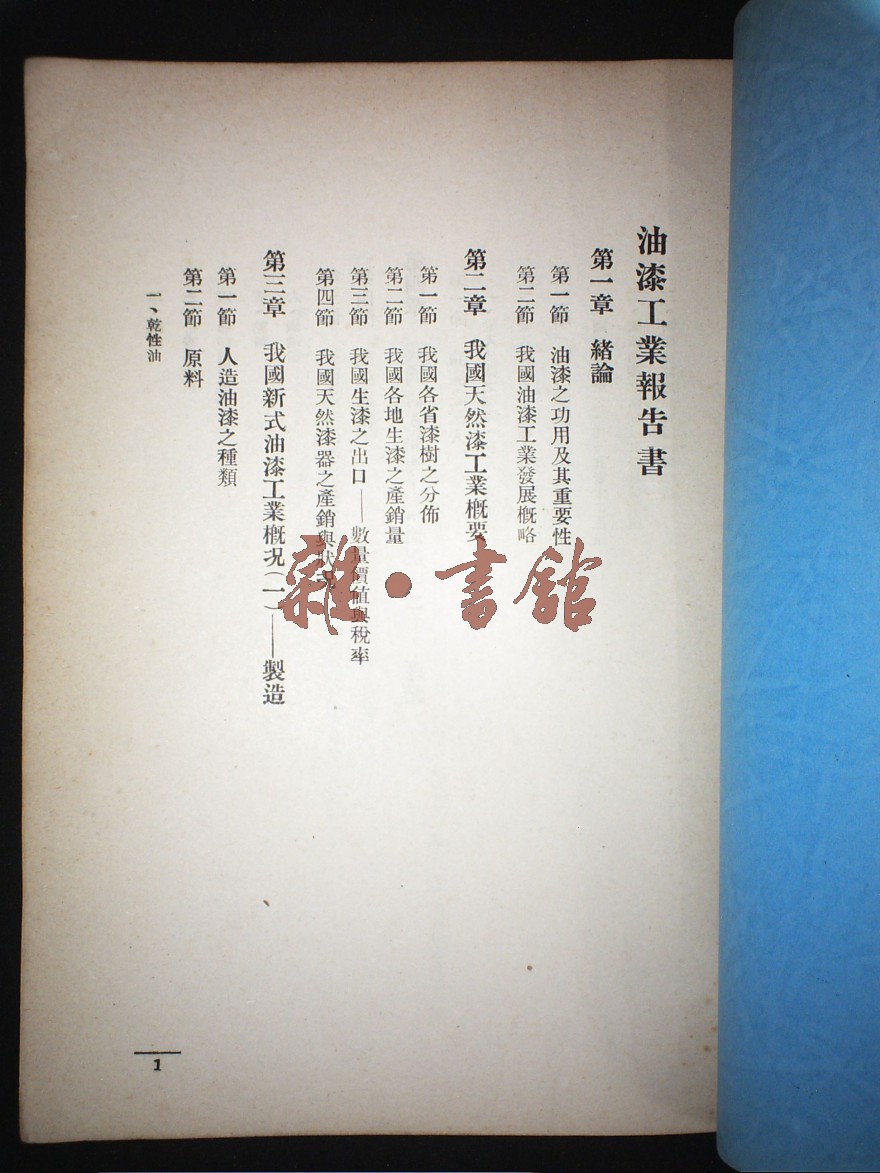 油漆工業報告書
第一章 緒論
第一節 油漆之功用及其重要性
第二節 我國油漆工業發展概略
第二章 我國天然漆工業概要
第一節 我國各省漆樹之分佈
第二節 我國各地生漆之產銷量
第三節 我國生漆之出口——數量價值與稅率
第四節 我國天然漆器之產銷與狀況
第三章 我國新式油漆工業概況(一)——製造
第一節 人造油漆之種類
第二節 原料
一、乾性油
1
雜·書館